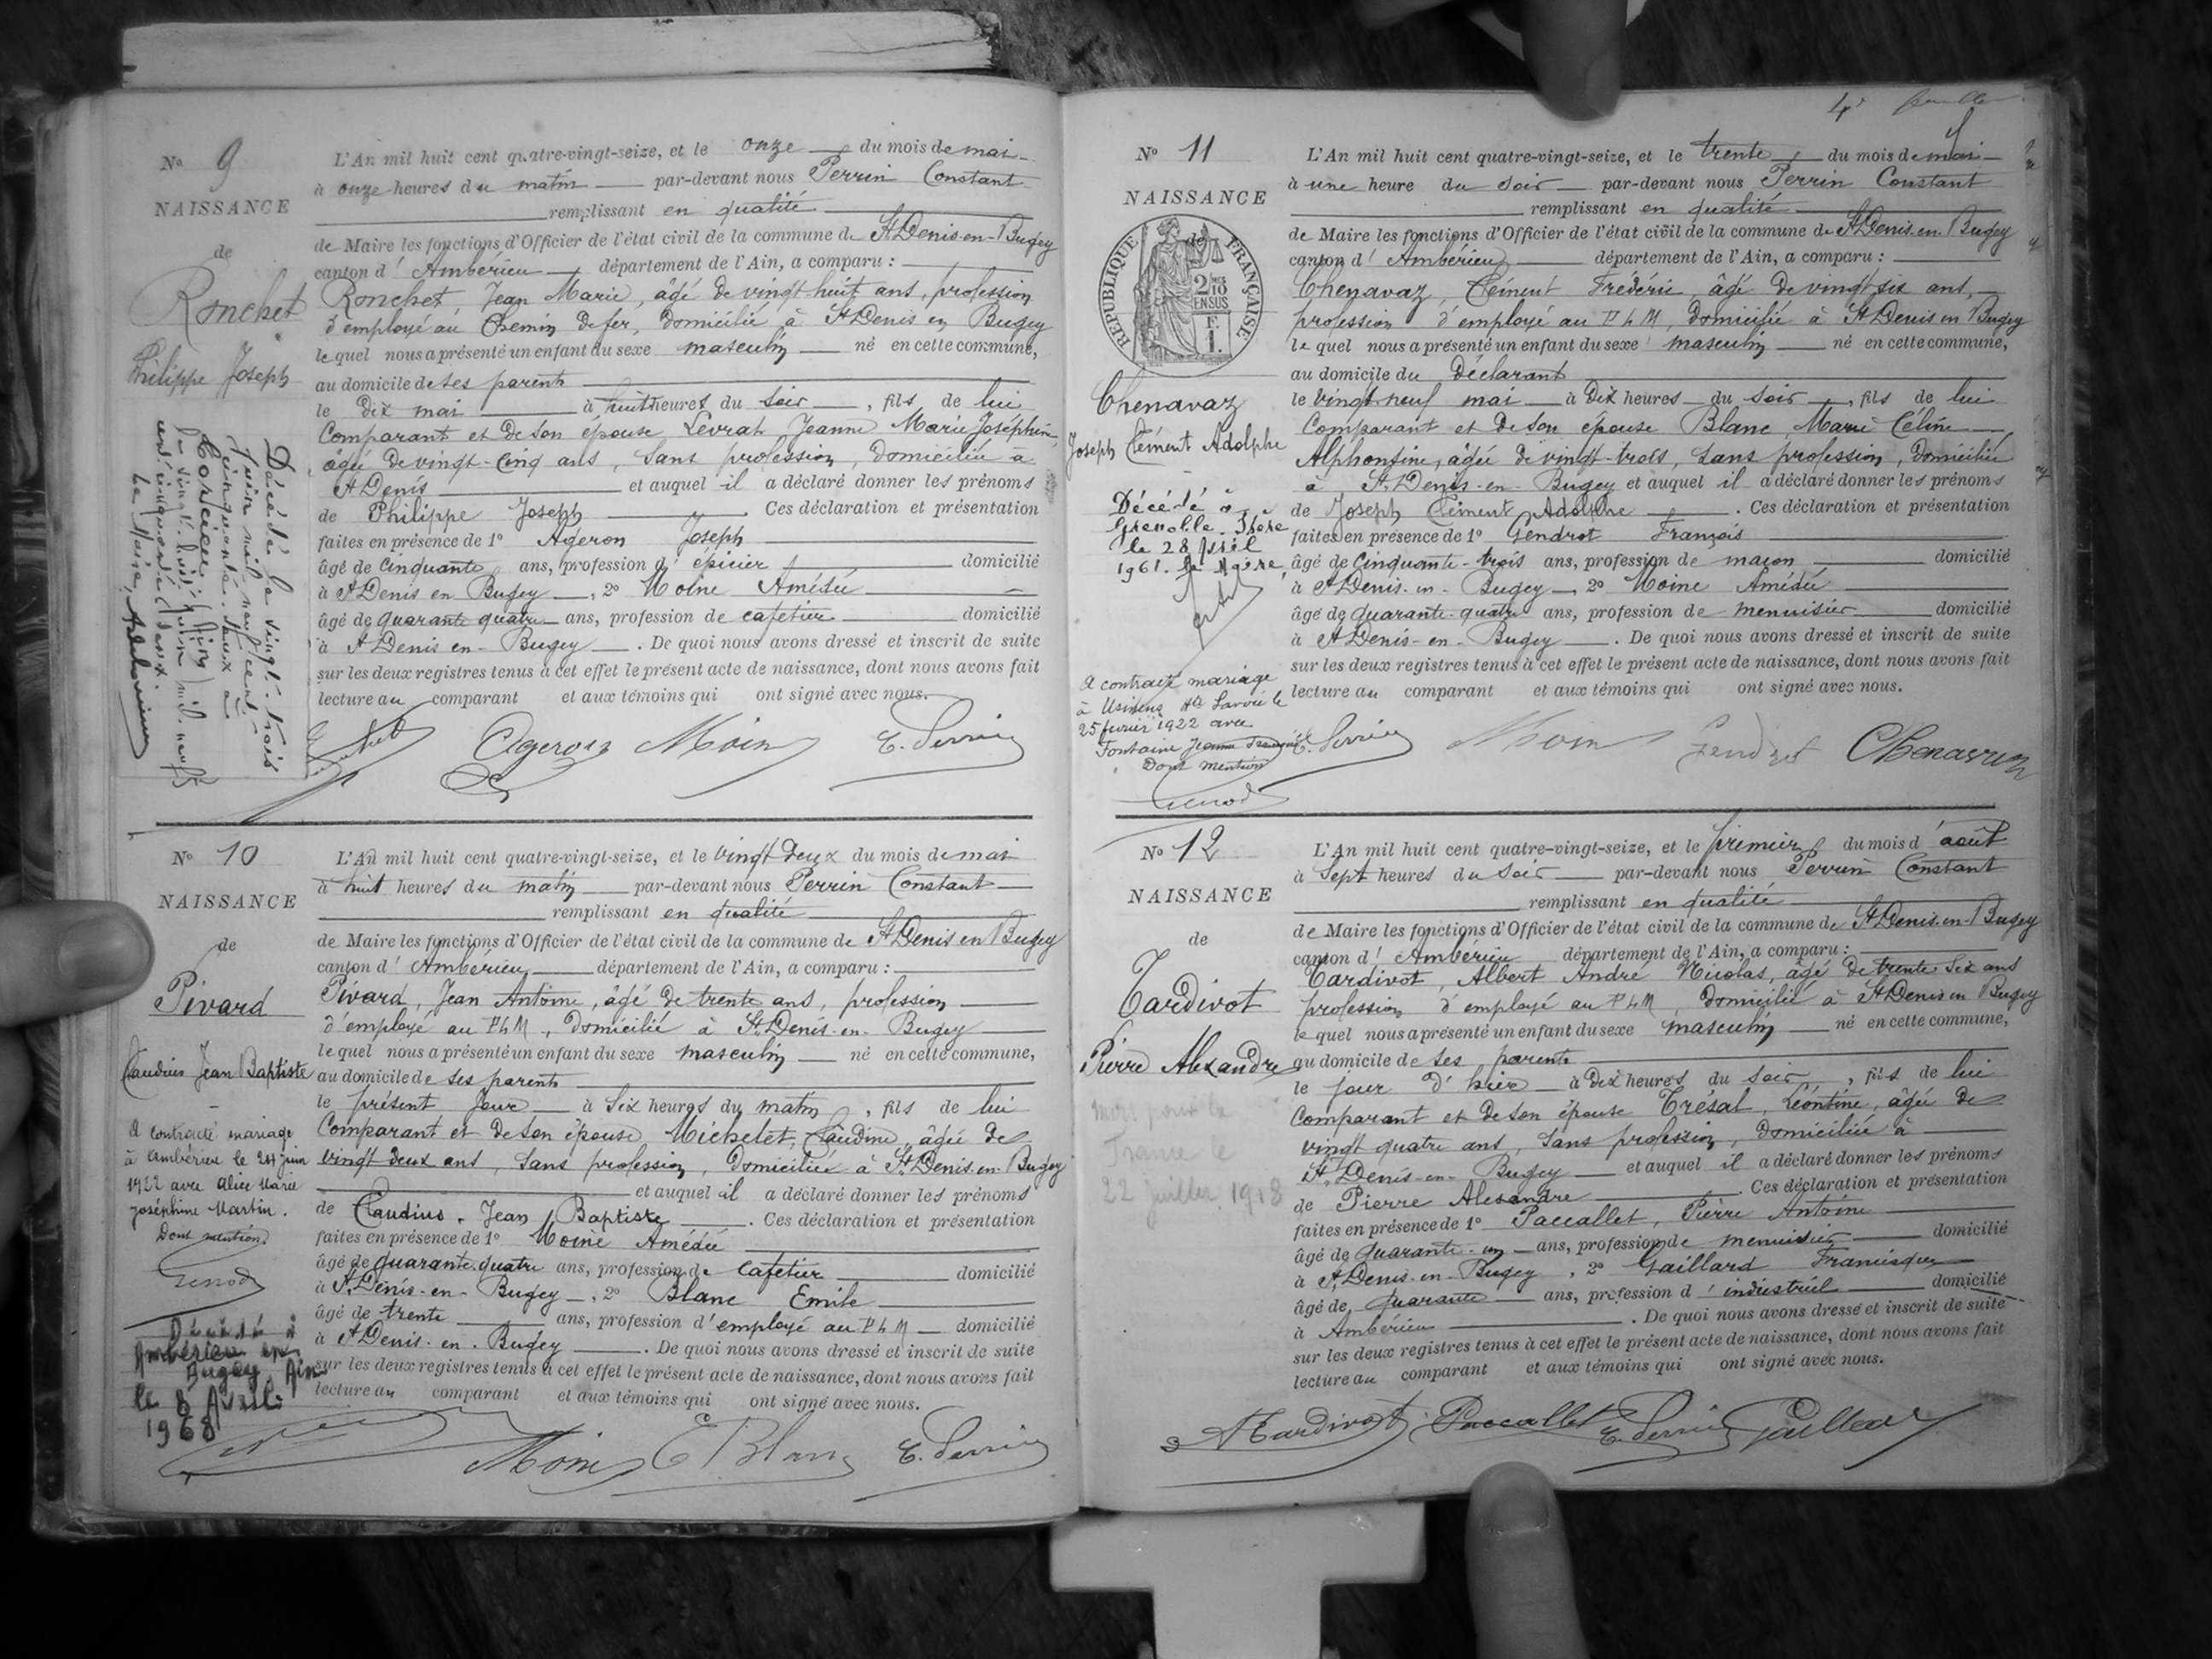 No 9
NAISSANCE
de
Ronchet
Philippe Joseph
Décédé le vingt-trois
Juin mil neuf cent
cinquante-deux à
Corcieu (Ain)
le vingt-huit Juin mil neuf
cent cinquante deux.
Le Maire,
L'An mil huit cent quatre-vingt-seize, et le onze du mois de mai
à onze heures du matin par-devant nous Perrin Constant
remplissant en qualité
de Maire les fonctions d'Officier de l'état civil de la commune de St Denis-en-Bugey
canton d' Ambérieu département de l'Ain, a comparu :
Ronchet, Jean Marie, âgé de vingt-huit ans, profession
d'employé au Chemin de fer, domicilié à St Denis en Bugey
lequel nous a présenté un enfant du sexe masculin né en cette commune,
au domicile de ses parents
le dix mai à huit heures du soir, fils de lui
Comparant et de son épouse Levrat Jeanne Marie Joséphine
âgée de vingt-cinq ans, sans profession, domiciliée à
St Denis et auquel il a déclaré donner les prénoms
de Philippe Joseph. Ces déclaration et présentation
faites en présence de 1° Ageron Joseph
âgé de Cinquante ans, profession d' épicier domicilié
à St Denis en Bugey, 2° Moine Amédée
âgé de quarante quatre ans, profession de cafetier domicilié
à St Denis en-Bugey. De quoi nous avons dressé et inscrit de suite
sur les deux registres tenus à cet effet le présent acte de naissance, dont nous avons fait
lecture au comparant et aux témoins qui ont signé avec nous.
Ageron Moine C. Perrin
No 10
NAISSANCE
de
Pivard
Claudius Jean Baptiste
A contracté mariage
à Ambérieu le 24 juin
1922 avec Alice Marie
Joséphine Martin.
Dont mention
Genod
Décédé à
Ambérieu en
Bugey Ain
le 8 Avril
1968
L'An mil huit cent quatre-vingt-seize, et le vingt deux du mois de mai
à huit heures du matin par-devant nous Perrin Constant
remplissant en qualité
de Maire les fonctions d'Officier de l'état civil de la commune de St Denis en Bugey
canton d' Ambérieu département de l'Ain, a comparu :
Pivard, Jean Antoine, âgé de trente ans, profession
d'employé au PLM, domicilié à St Denis-en-Bugey
lequel nous a présenté un enfant du sexe masculin né en cette commune,
au domicile de ses parents
le présent jour à six heures du matin, fils de lui
Comparant et de son épouse Michelet, Claudine, âgée de
vingt deux ans, sans profession, domiciliée à St Denis-en-Bugey
et auquel il a déclaré donner les prénoms
de Claudius, Jean Baptiste. Ces déclaration et présentation
faites en présence de 1° Moine Amédée
âgé de quarante-quatre ans, profession de cafetier domicilié
à St Denis-en-Bugey, 2° Blanc Emile
âgé de trente ans, profession d'employé au PLM domicilié
à St Denis-en-Bugey. De quoi nous avons dressé et inscrit de suite
sur les deux registres tenus à cet effet le présent acte de naissance, dont nous avons fait
lecture au comparant et aux témoins qui ont signé avec nous.
Moine E Blanc C. Perrin
4e feuillet
No 11
NAISSANCE
de
REPUBLIQUE FRANÇAISE
2/10
EN SUS
1 F.
Chenavaz
Joseph Clément Adolphe
Décédé à
Grenoble Isère
le 28 Avril
1961. Le Maire,
A contracté mariage
à Usinens Hte Savoie le
25 février 1922 avec
Fontaine Jeanne
Dont mention
Genod
L'An mil huit cent quatre-vingt-seize, et le trente du mois de mai
à une heure du soir par-devant nous Perrin Constant
remplissant en qualité
de Maire les fonctions d'Officier de l'état civil de la commune de St Denis-en-Bugey
canton d' Ambérieu département de l'Ain, a comparu :
Chenavaz, Clément Frédéric, âgé de vingt six ans,
profession d'employé au PLM, domicilié à St Denis en Bugey
lequel nous a présenté un enfant du sexe masculin né en cette commune,
au domicile du Déclarant
le vingt-neuf mai à dix heures du soir, fils de lui
Comparant et de son épouse Blanc, Marie Céline
Alphonsine, âgée de vingt-trois, sans profession, domiciliée
à St Denis-en-Bugey et auquel il a déclaré donner les prénoms
de Joseph Clément Adolphe. Ces déclaration et présentation
faites en présence de 1° Gendrot François
âgé de Cinquante-trois ans, profession de maçon domicilié
à St Denis-en-Bugey, 2° Moine Amédée
âgé de quarante-quatre ans, profession de menuisier domicilié
à St Denis-en-Bugey. De quoi nous avons dressé et inscrit de suite
sur les deux registres tenus à cet effet le présent acte de naissance, dont nous avons fait
lecture au comparant et aux témoins qui ont signé avec nous.
C. Perrin Moine Gendrot Chenavaz
No 12
NAISSANCE
de
Tardivot
Pierre Alexandre
mort pour la
France le
22 juillet 1918
L'An mil huit cent quatre-vingt-seize, et le premier du mois d'août
à Sept heures du soir par-devant nous Perrin Constant
remplissant en qualité
de Maire les fonctions d'Officier de l'état civil de la commune de St Denis-en-Bugey
canton d' Ambérieu département de l'Ain, a comparu :
Tardivot, Albert André Nicolas, âgé de trente six ans
profession d'employé au PLM, domicilié à St Denis en Bugey
lequel nous a présenté un enfant du sexe masculin né en cette commune,
au domicile de ses parents
le jour d'hier à dix heures du soir, fils de lui
Comparant et de son épouse Trésal, Léontine, âgée de
vingt quatre ans, sans profession, domiciliée à
St Denis-en-Bugey et auquel il a déclaré donner les prénoms
de Pierre Alexandre. Ces déclaration et présentation
faites en présence de 1° Paccallet, Pierre Antoine
âgé de quarante-un ans, profession de menuisier domicilié
à St Denis-en-Bugey, 2° Gaillard Francisque
âgé de quarante ans, profession d'industriel domicilié
à Ambérieu. De quoi nous avons dressé et inscrit de suite
sur les deux registres tenus à cet effet le présent acte de naissance, dont nous avons fait
lecture au comparant et aux témoins qui ont signé avec nous.
A Tardivot Paccallet C. Perrin Gaillard